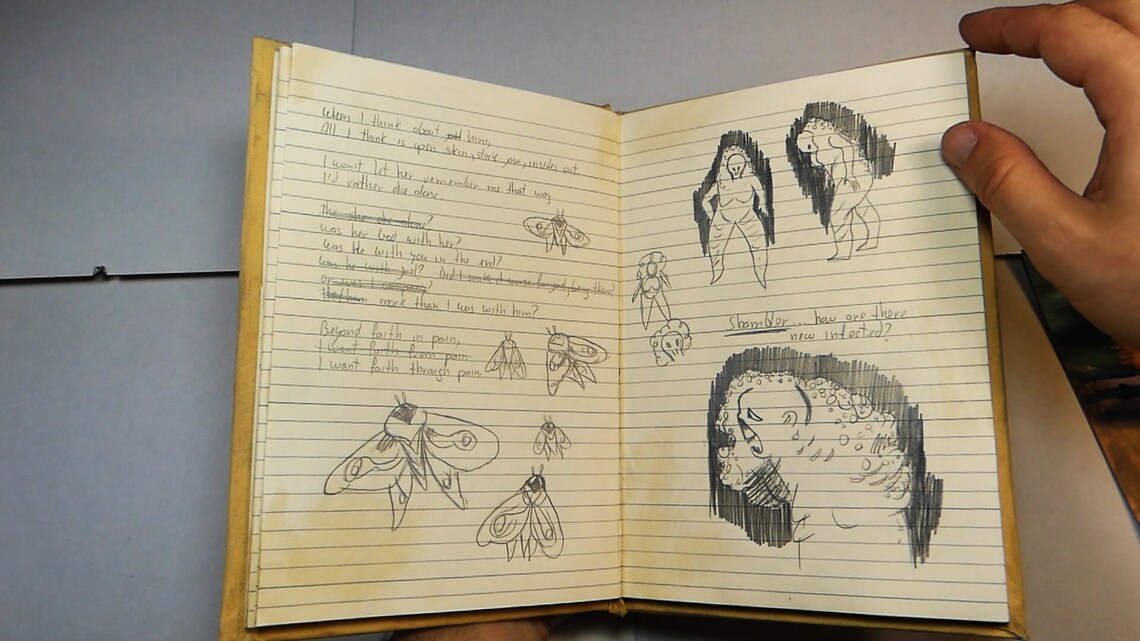 When I think about him,
All I think is open skin, slack jaw, insides out.
I won't let her remember me that way
I'd rather die alone.
the she die alone?
was her God with her?
was He with you in the end?
was he with Did I make it worse for just being there?
or was I
more than I was with him?
Beyond faith in pain,
I want faith from pain
I want faith through pain.
shambler... how are there
new infected?